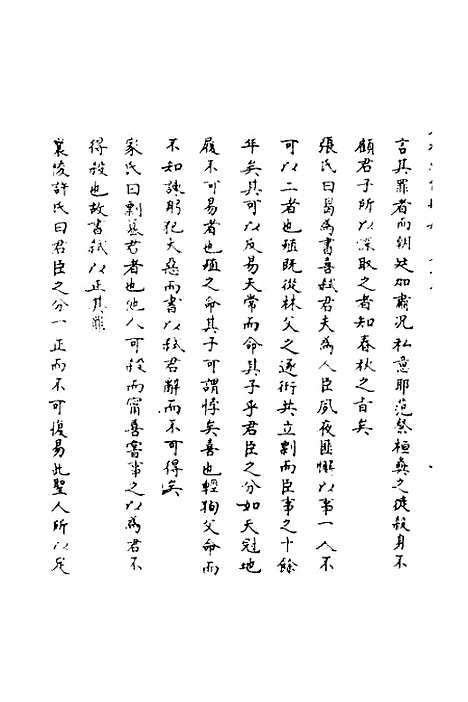 言其罪者而朝廷加肅况私意耶范粲桓彝之徒殺身不
顧君子所以深取之者知春秋之旨矣
張氏曰曷為書喜弑君夫為人臣夙夜匪懈以事一人不
可以二者也殖既從林父之逐衎共立剽而臣事之十餘
年矣其可以反易天常而命其子乎君臣之分如天冠地
履不可易者也殖之命其子可謂悖矣喜也輕狥父命而
不知諫躬犯大惡而書以弑君辭而不可得矣
家氏曰剽簒君者也他人可殺而甯喜嘗事之以為君不
得殺也故書弑以正其罪
襄陵許氏曰君臣之分一正而不可復易此聖人所以